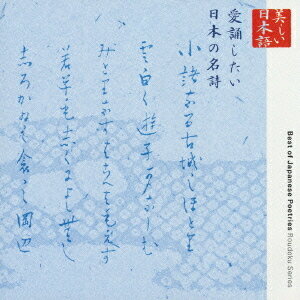 美しい
日本語
愛誦したい
日本の名詩
小諸なる古城のほとり
雲白く遊子かなしむ
みどりなすはこべはもえず
若草も志くによしなし
志ろがねの衾の岡辺
Best of Japanese Poetries Roudoku Series